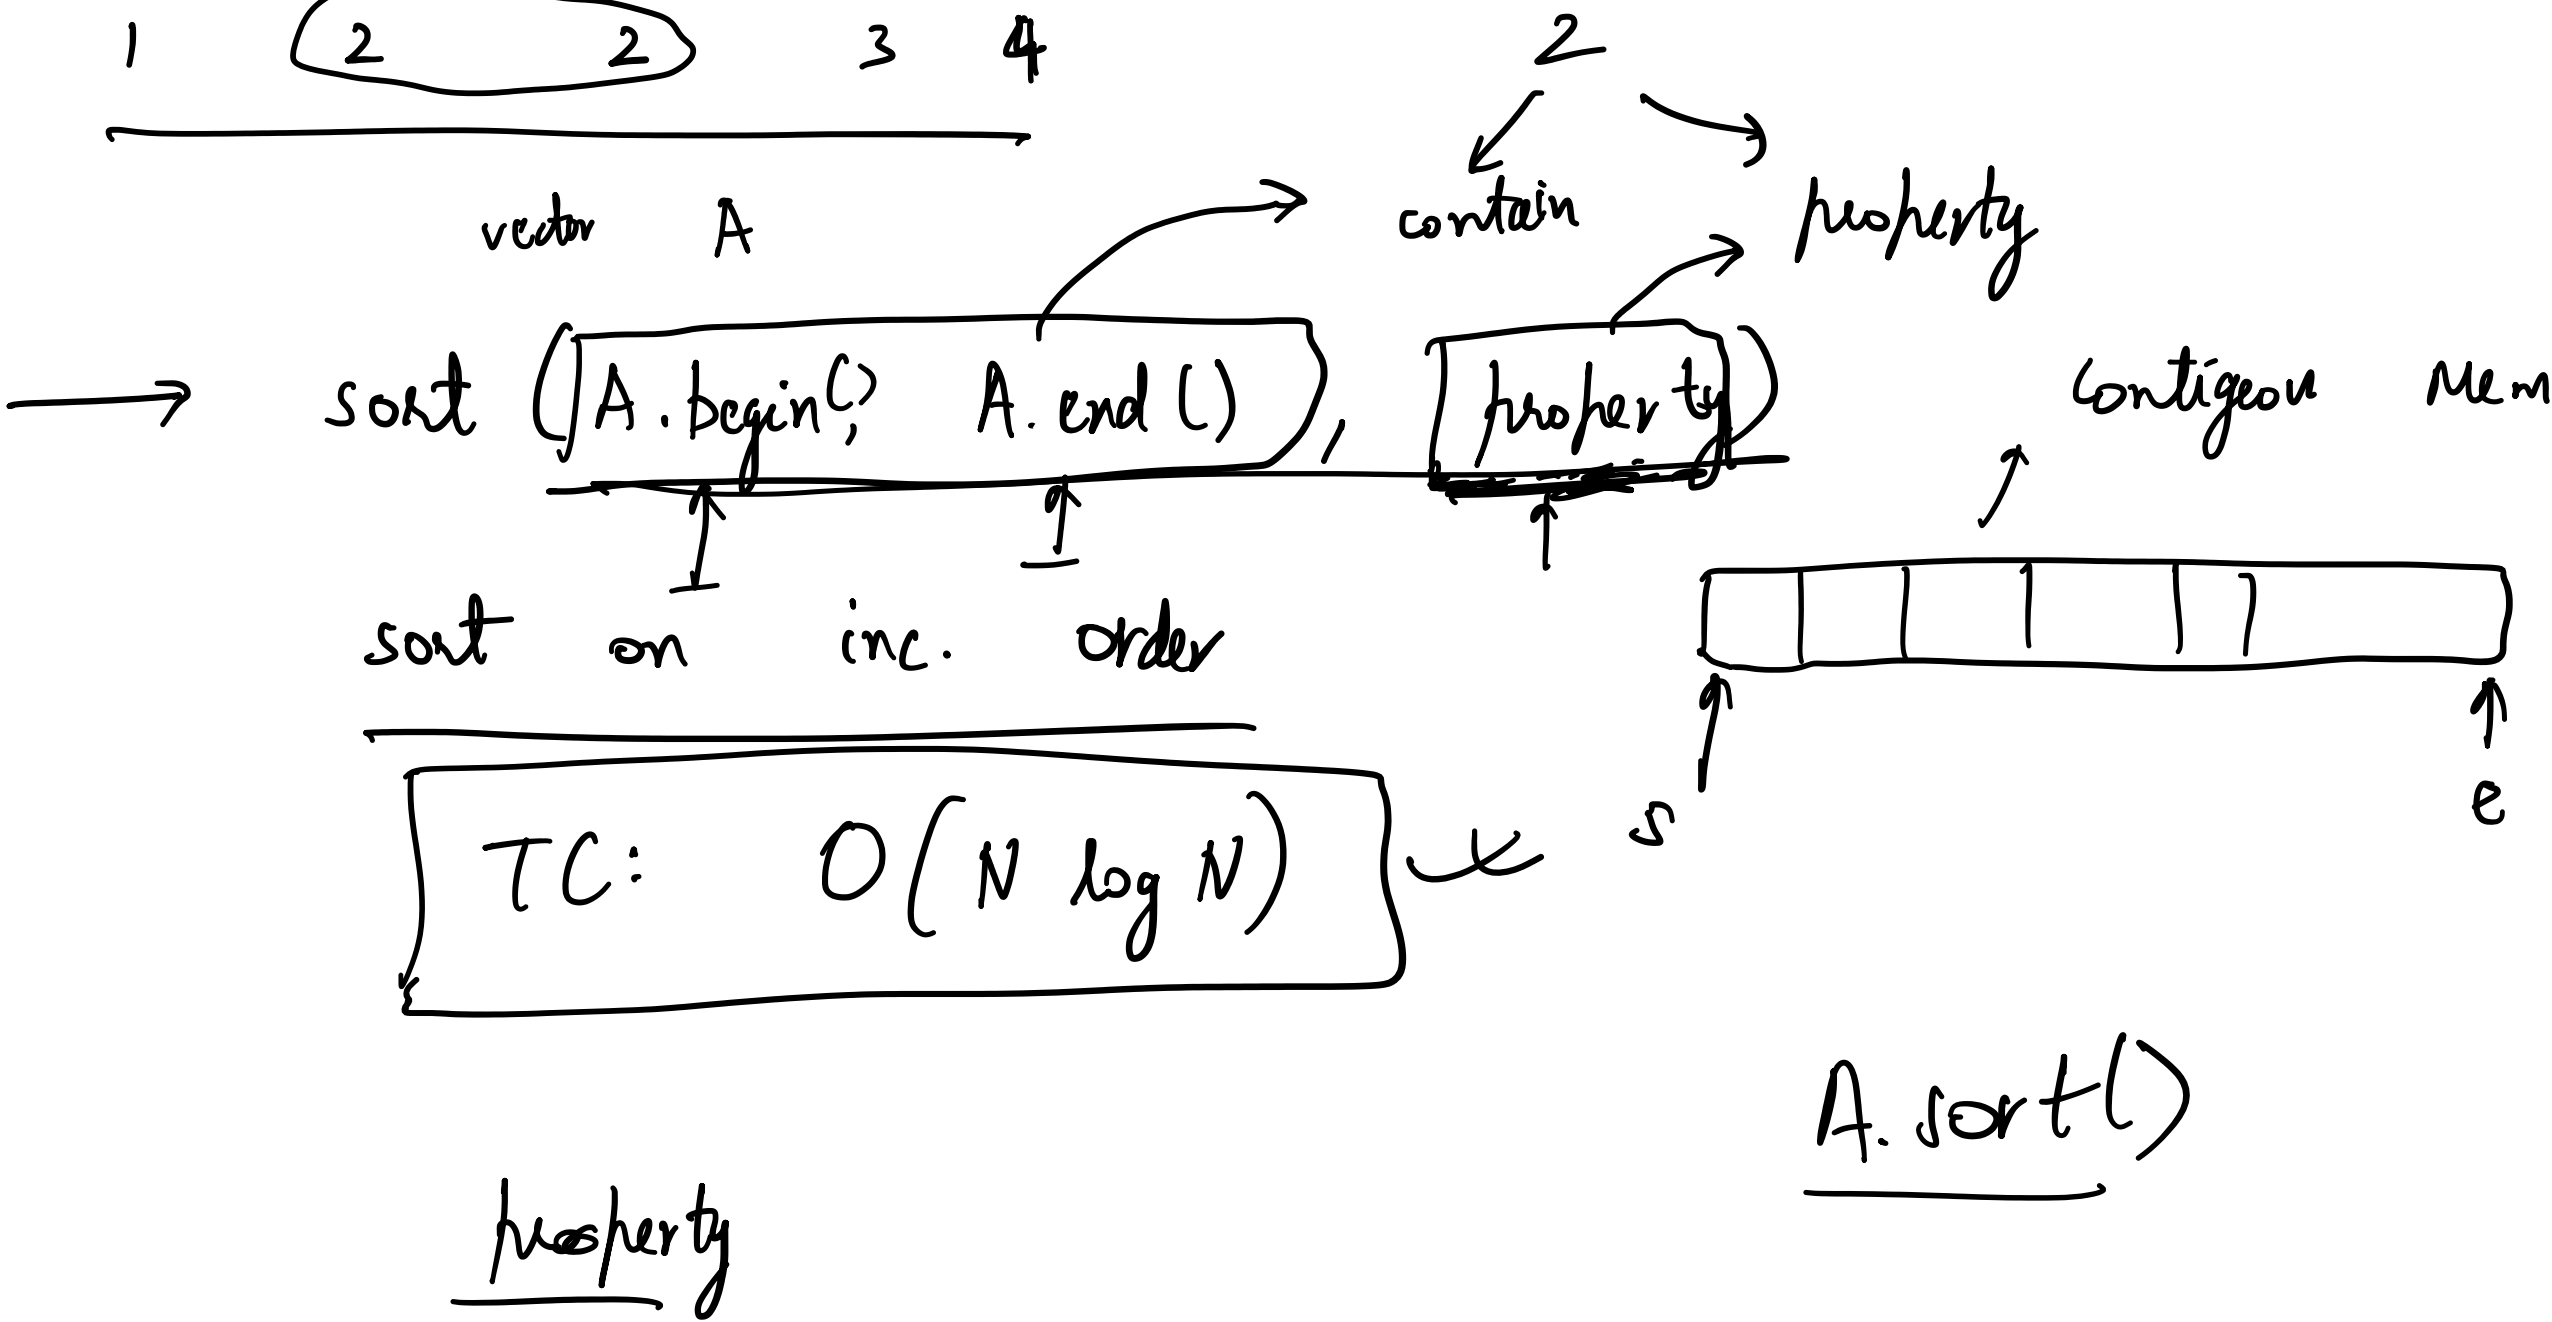 1 2 2 3 4 2
vector A contain property
sort (A.begin(), A.end(), property) Contigeou Mem
sort on inc. order
TC: O(N log N) s e
A.sort()
property